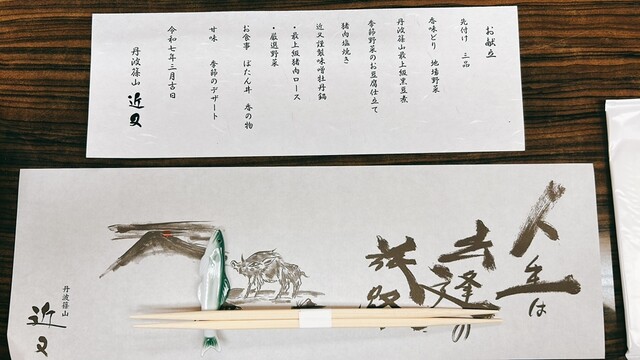 お献立
先付け 三品
香味どり 地場野菜
丹波篠山最上級黒豆煮
季節野菜のお豆腐仕立て
猪肉塩焼き
近又謹製味噌牡丹鍋
・最上級猪肉ロース
・厳選野菜
お食事 ぼたん丼 香の物
甘味 季節のデザート
令和七年三月吉日
丹波篠山 近又
人生は
出逢の
旅路
丹波篠山
近又